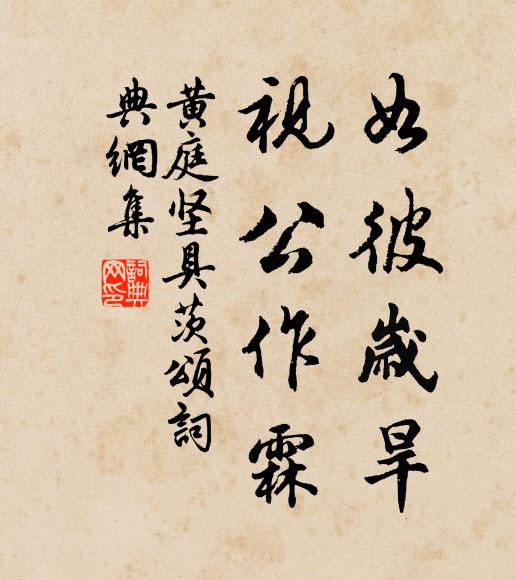 如彼歲旱
視公作霖
黄庭坚具茨頌詞
典網集
詞典
网印